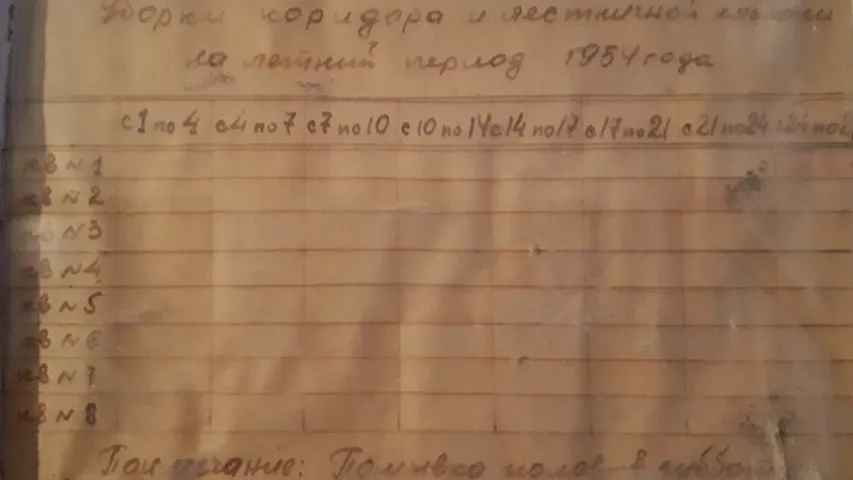 Уборки коридора и лестничной клетки
на летний период 1954 года
с 1 по 4 с 4 по 7 с 7 по 10 с 10 по 14 с 14 по 17 с 17 по 21 с 21 по 24 с 24 по
кв № 1
кв № 2
кв № 3
кв № 4
кв № 5
кв № 6
кв № 7
кв № 8
Примечание: Помывка полов в субботу